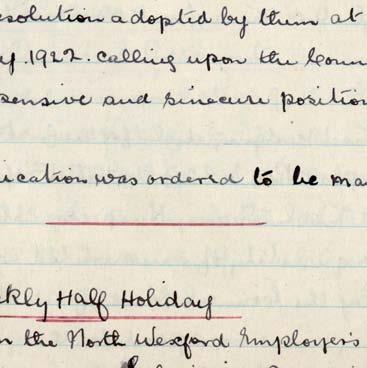 esolution adopted by them at
y. 1922. calling upon the Coun
pensive and sinecure position
ication was ordered to be ma
ekly Half Holiday
n the North Wexford Employer's